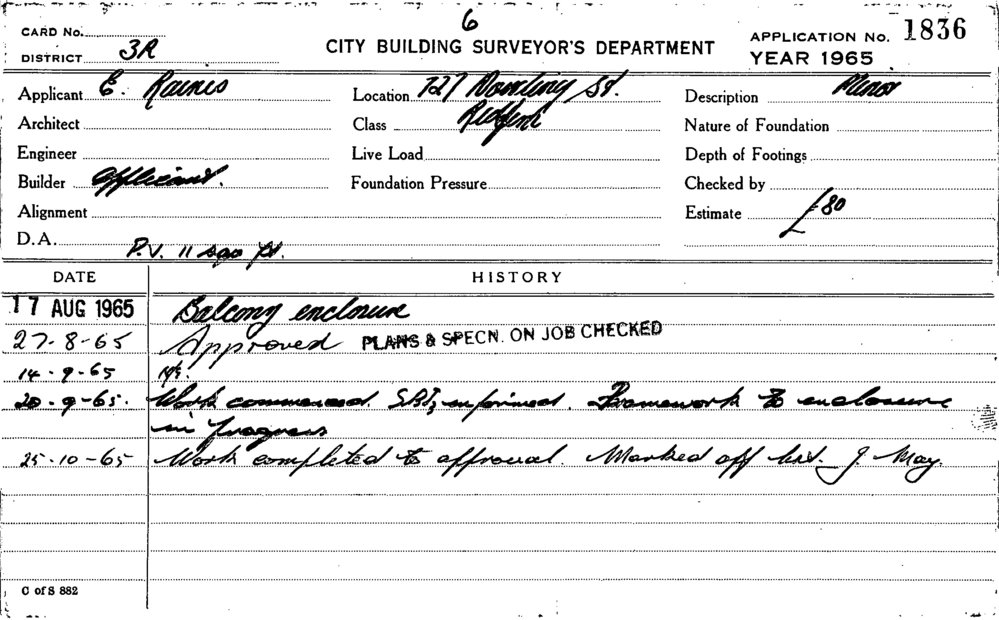 6
CARD No.
DISTRICT 3R
CITY BUILDING SURVEYOR'S DEPARTMENT
APPLICATION No. 1836
YEAR 1965
Applicant E. Raines
Location 727 Dowling St.
Redfern
Description Minor
Architect
Class
Nature of Foundation
Engineer
Live Load
Depth of Footings
Builder Applicant.
Foundation Pressure
Checked by
Alignment
Estimate £80
D.A. P.V. 11 Sqd
DATE HISTORY
17 AUG 1965 Balcony enclosure
27-8-65 Approved PLANS & SPECN. ON JOB CHECKED
14-9-65
20-9-65. Work commenced. informed. Framework to enclosure
in progress
25-10-65 Work completed to approval. Marked off list. J. May.
C of S 882